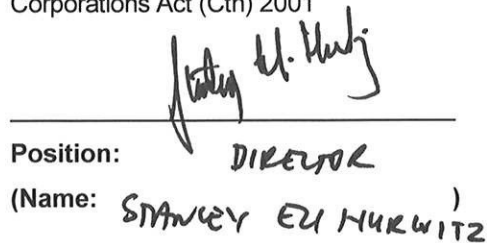 Corporations Act (Cth) 2001
Position: DIRECTOR
(Name: STANLEY ELI HURWITZ )